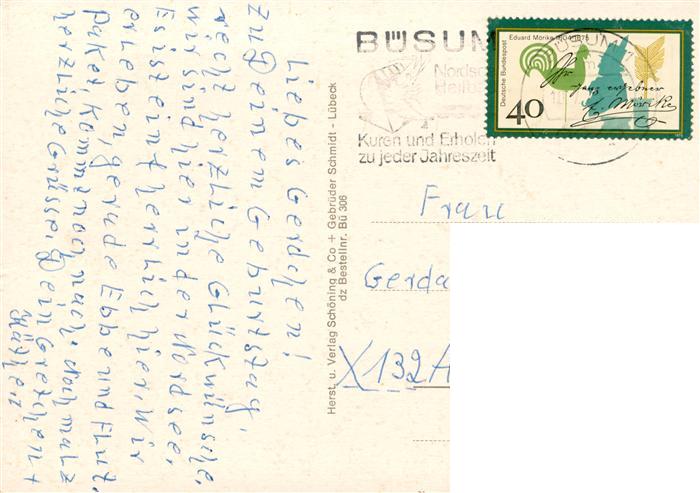 Liebes Gerdchen!
Zu Deinem Geburtstag,
recht herzliche Glückwünsche.
Wir sind hier in der Nordsee.
Es ist einfach herrlich hier. Wir
erleben, gerade Ebbe und Flut.
Paket kommt noch nach. Nochmals
herzliche Grüsse. Dein Gretchen +
Herst. u. Verlag Schöning & Co + Gebrüder Schmidt - Lübeck
dz Bestellnr. Bü 306
BÜSUM
Nordsee
Heilbad
Kuren und Erholen
zu jeder Jahreszeit
BÜSUM 1
Deutsche Bundespost
Eduard Mörike 1804-1875
40
ganz ergebner
E. Mörike
Frau
Gerda
X132A